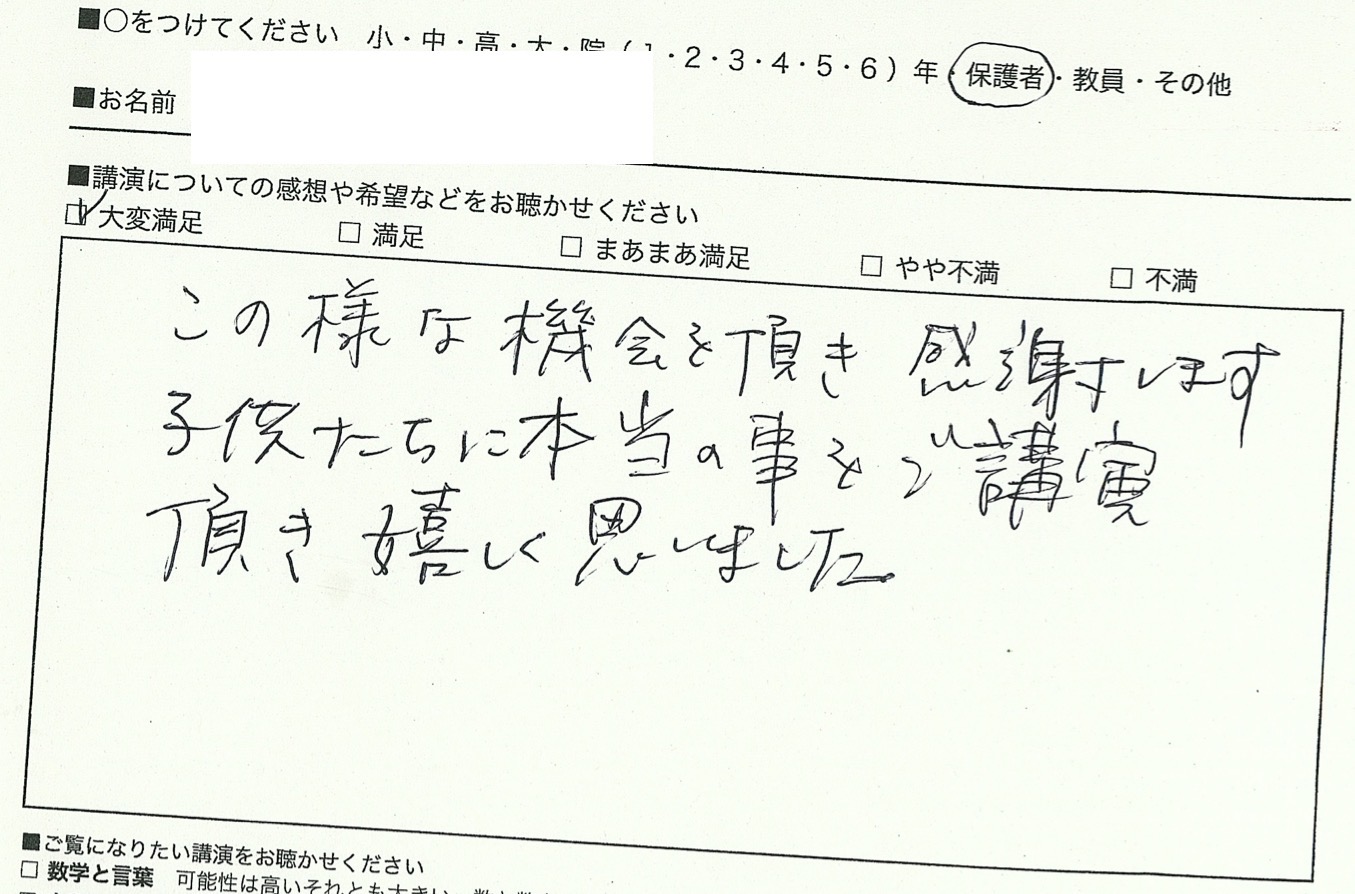 ■○をつけてください 小・中・高・大・院（1・2・3・4・5・6）年・保護者・教員・その他
■お名前
■講演についての感想や希望などをお聴かせください
□大変満足 □満足 □まあまあ満足 □やや不満 □不満
この様な機会を頂き 感謝すします
子供たちに本当の事をご講演
頂き嬉しく思いしました
■ご覧になりたい講演をお聴かせください
□ 数学と言葉 可能性は高いそれとも大きい